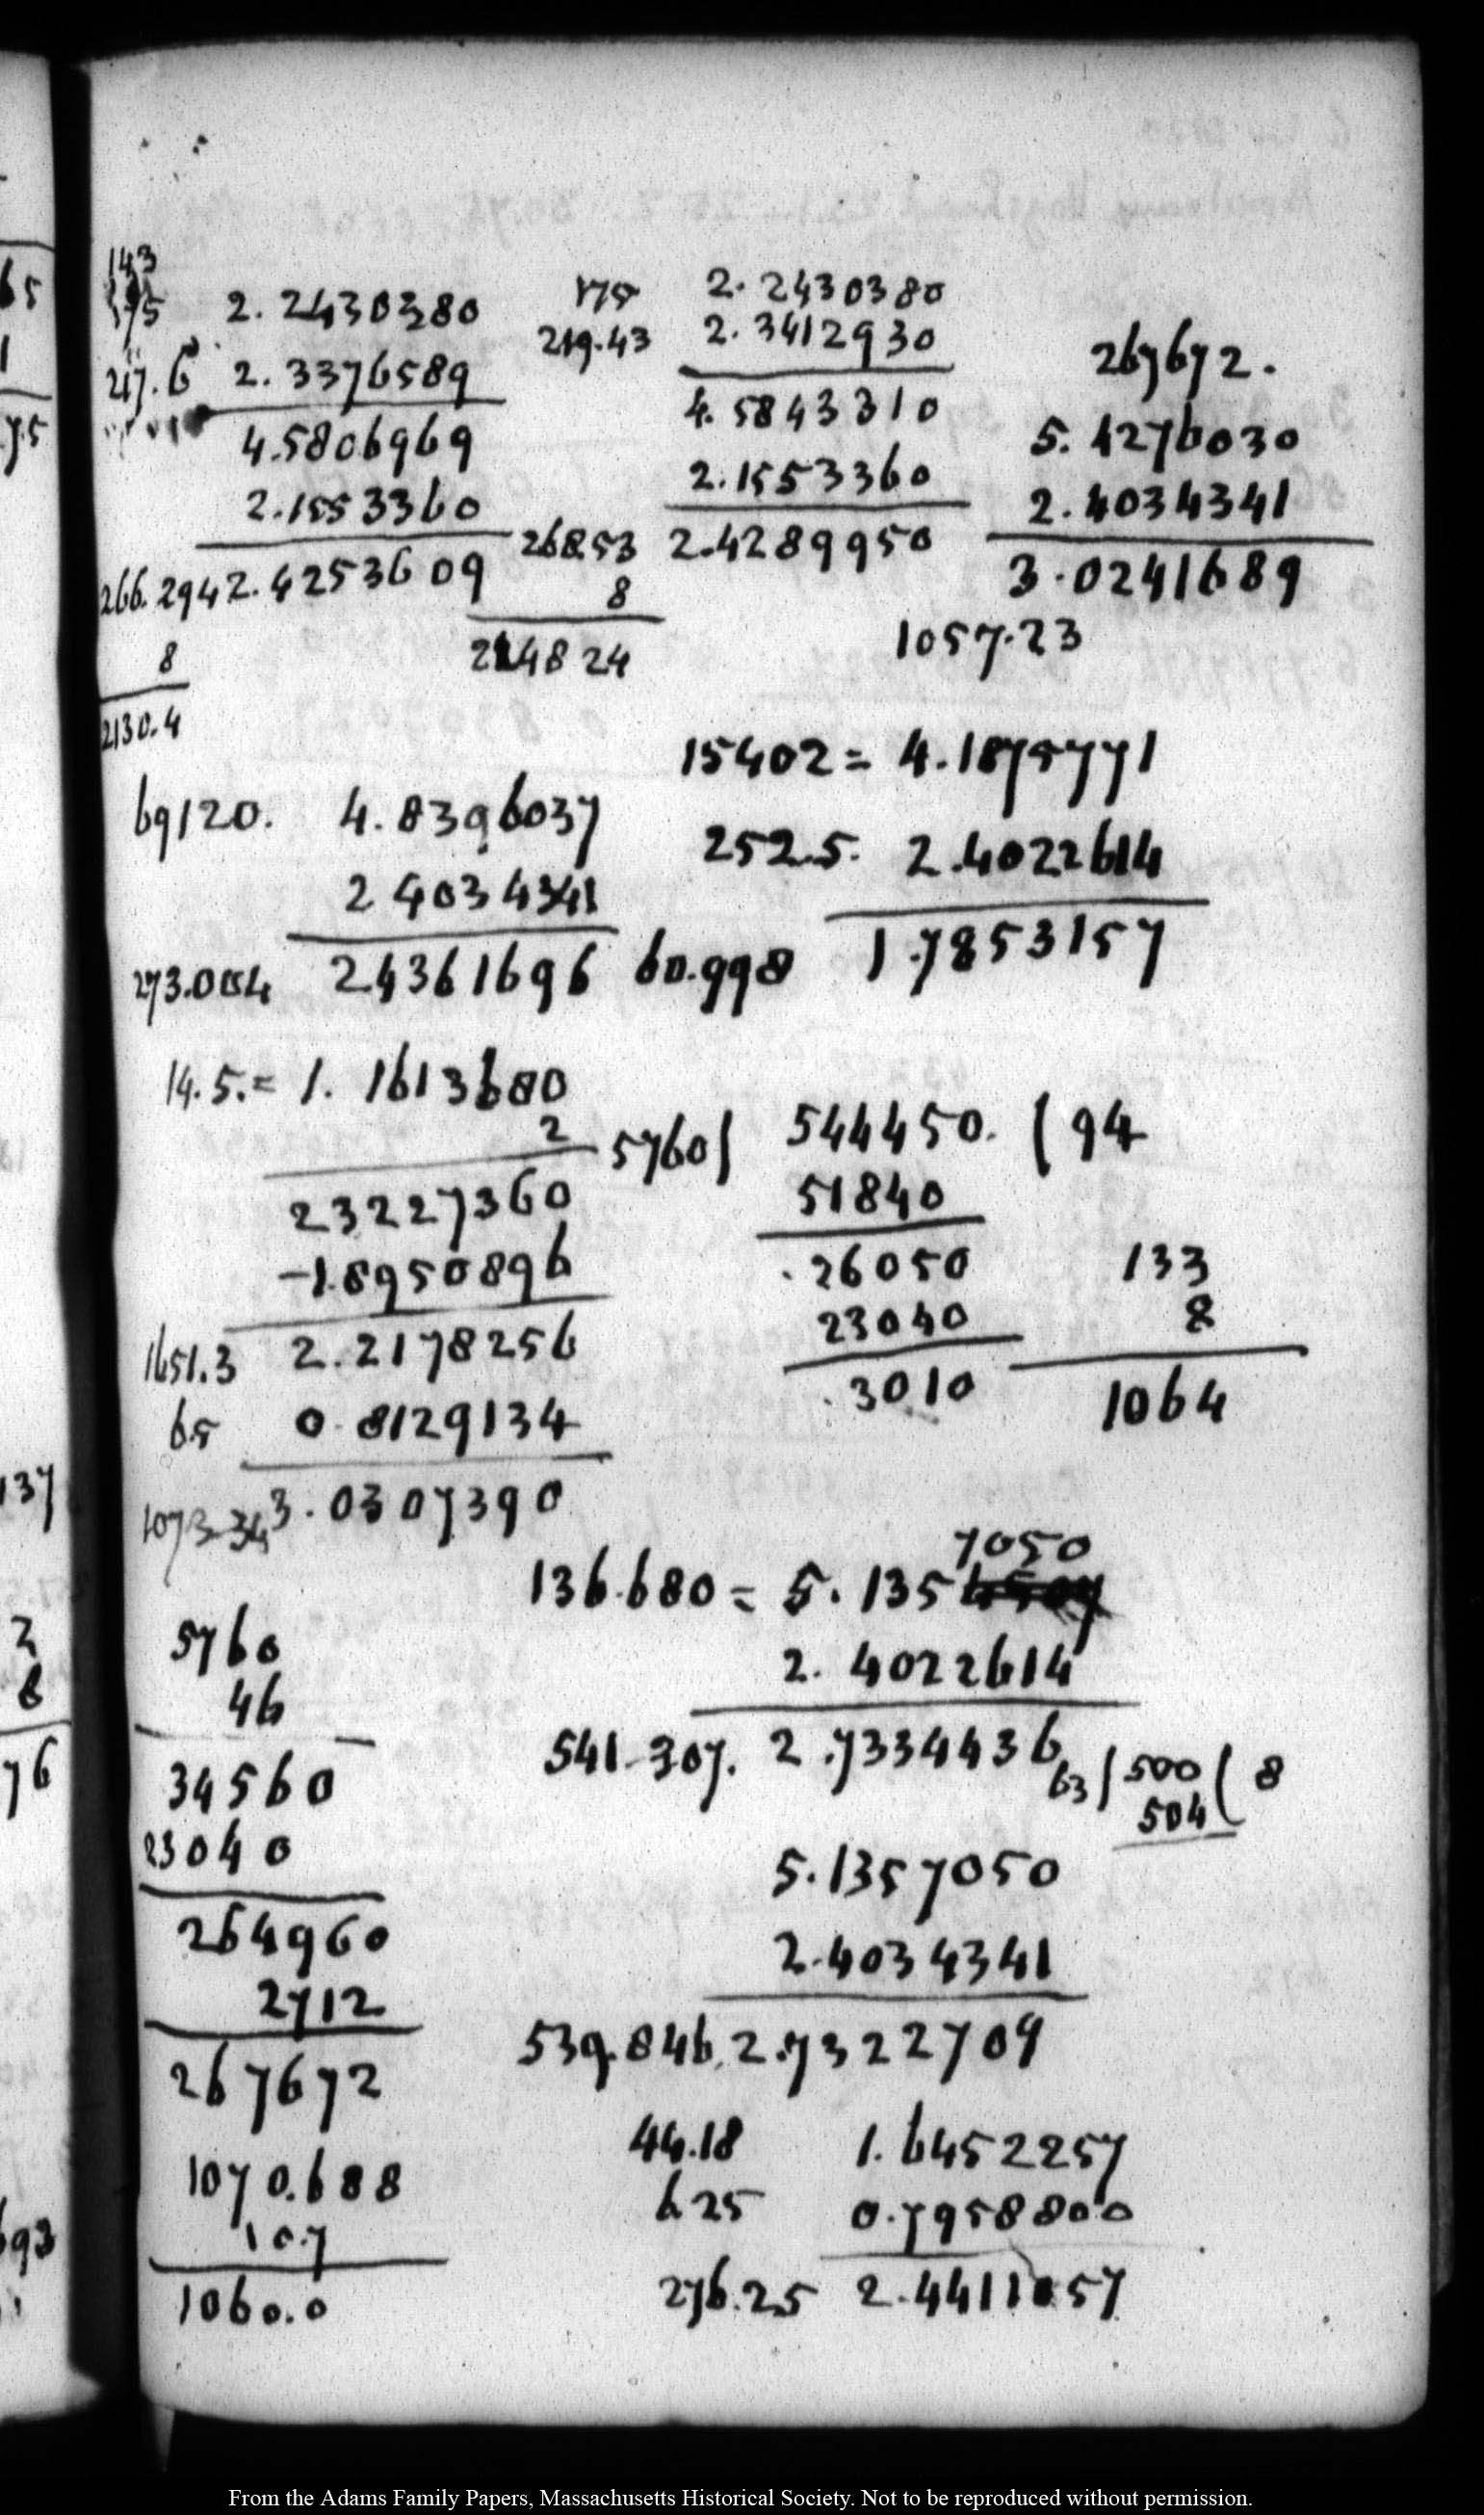 143
175 2.2430380
217.6 2.3376589
4.5806969
2.1553360
266.294 2.4253609
8
2130.4
175 2.2430380
219.43 2.3412930
4.5843310
2.1553360
268.53 2.4289950
8
214824
267672.
5.4276030
2.4034341
3.0241689
1057.23
69120. 4.8396037
2 4034341
273.004 24361696
15402 = 4.1875771
252.5. 2.4022614
60.998 1.7853157
14.5. = 1. 1613680
2
23227360
-1.8950896
1651.3 2.2178256
65 0.8129134
1073.34 3.0307390
5760) 544450. (94
51840
.26050
23040
.3010
133
8
1064
7050
136.680 = 5.135
2.4022614
541.307. 2.7334436
63) 500 (8
504
5760
46
34560
23040
264960
2712
267672
1070.688
10.7
1060.0
5.1357050
2.4034341
539.846. 2.7322709
44.18 1.6452257
6.25 0.7958800
276.25 2.4411057
65
1
75
137
2
8
76
693
From the Adams Family Papers, Massachusetts Historical Society. Not to be reproduced without permission.